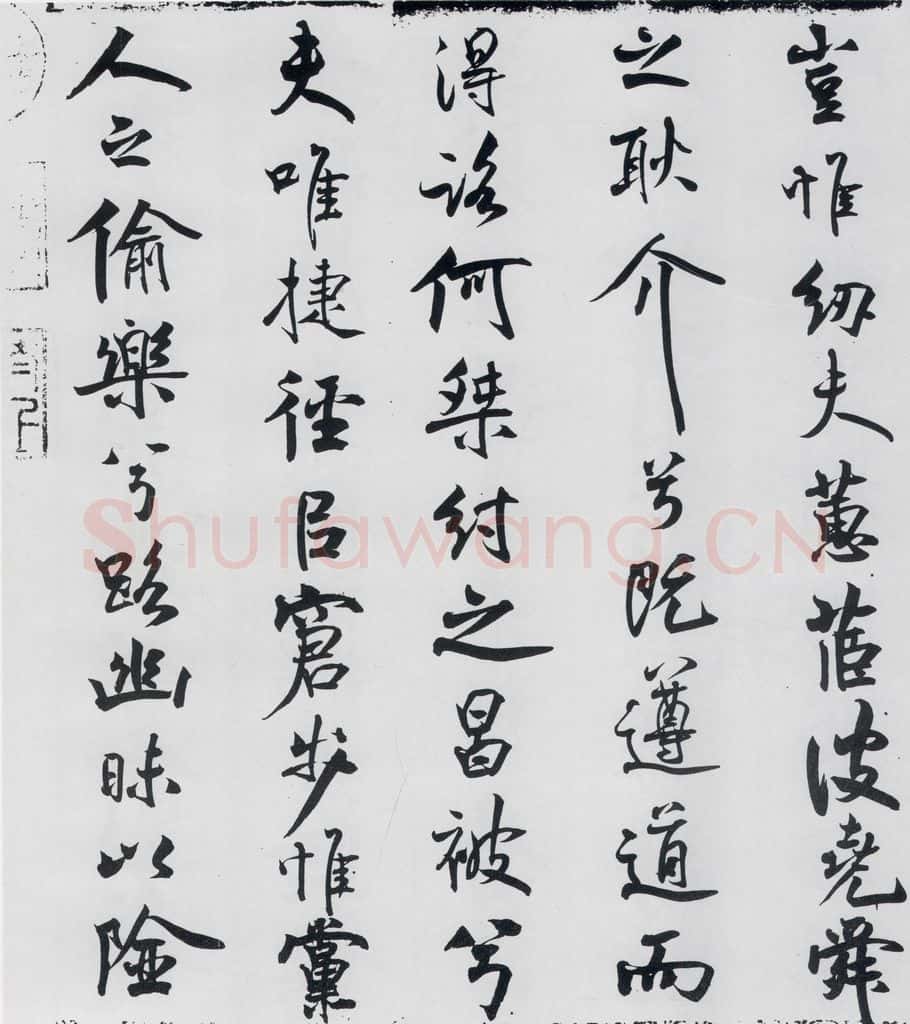 豈惟紉夫蕙茝彼堯舜
之耿介兮既遵道而
得路何桀紂之昌被兮
夫唯捷徑㠯窘步惟黨
人之偷樂兮路幽昧以險
Shufawang.CN